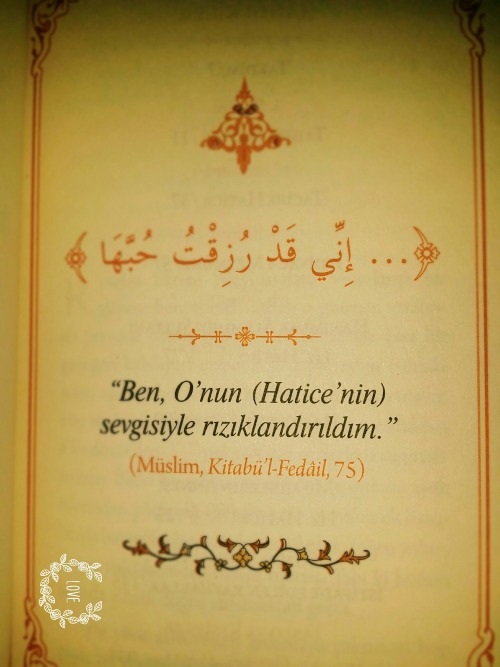 ﴿... إِنِّي قَدْ رُزِقْتُ حُبَّهَا﴾
“Ben, O’nun (Hatice’nin)
sevgisiyle rızıklandırıldım.”
(Müslim, Kitabü’l-Fedâil, 75)
LOVE